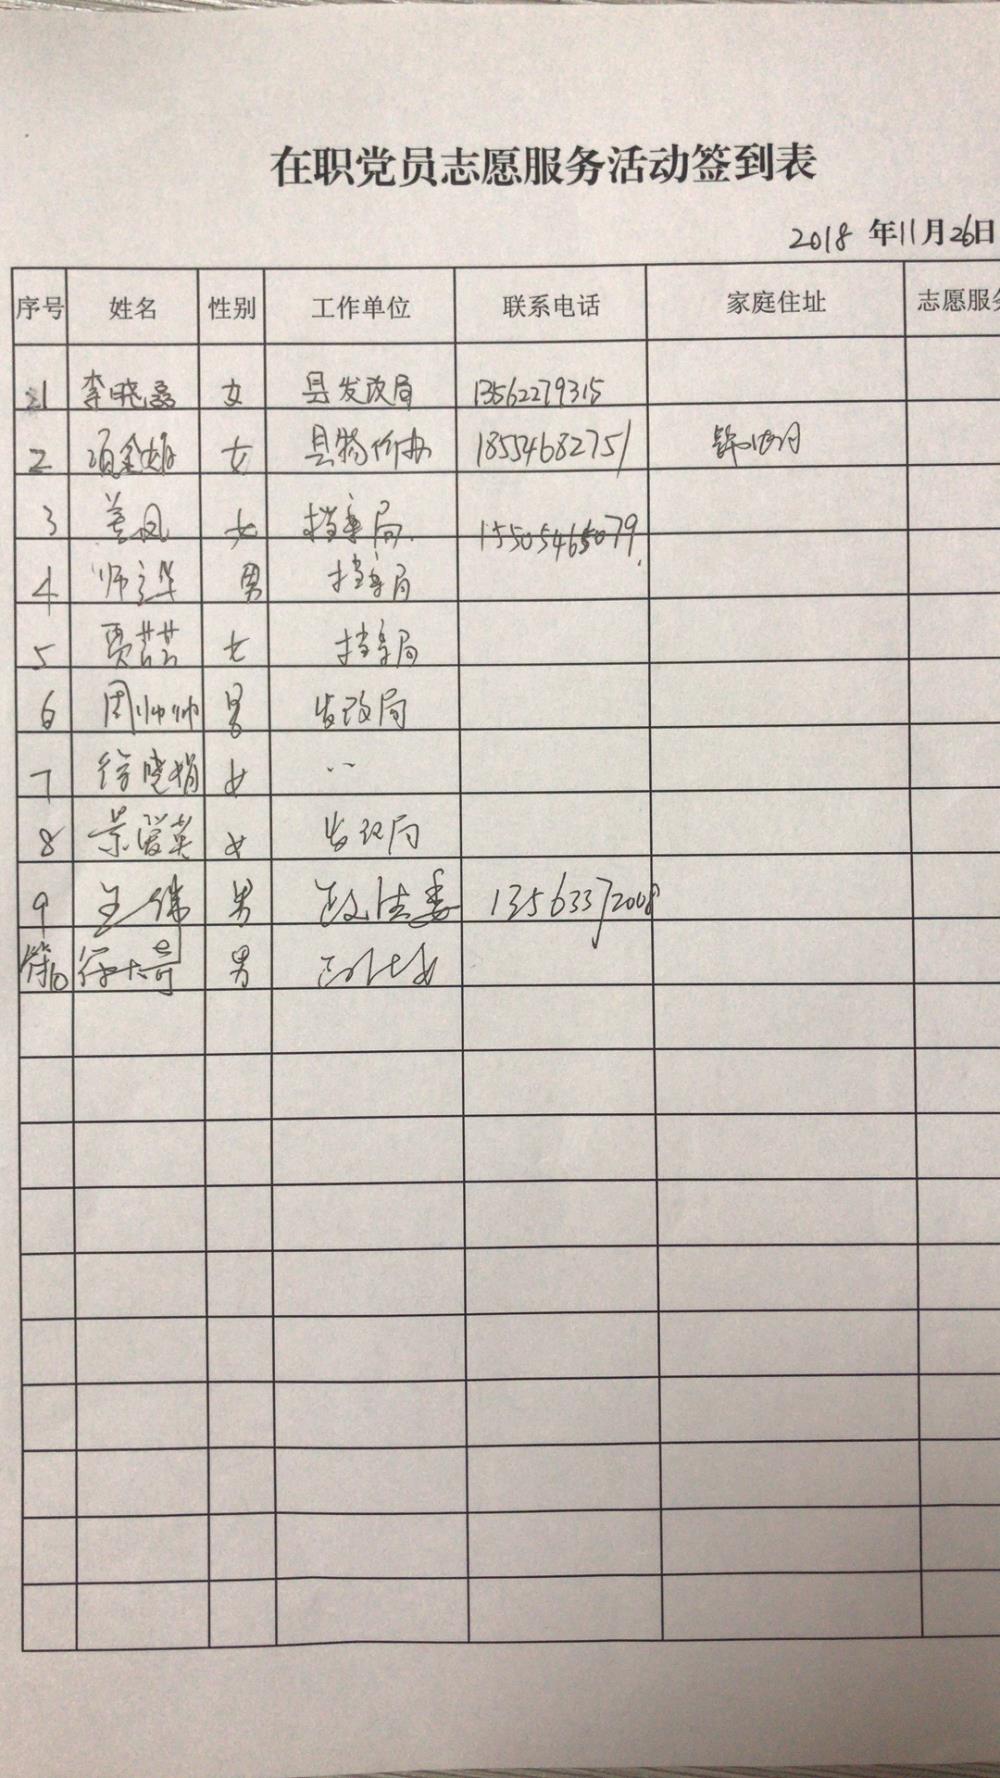 在职党员志愿服务活动签到表
2018 年11月26日
序号 姓名 性别 工作单位 联系电话 家庭住址 志愿服务
1 李晓磊 女 县发改局 13562279315
2 女 县物价办 18554682751
3 姜凤 女 档案局 15505465079
4 师立华 男 档案局
5 贾芸芸 女 档案局
6 周帅帅 男 发改局
7 徐晓娟 女 ..
8 景爱英 女 发改局
9 王伟 男 政法委 13563372008
10 男 政法委